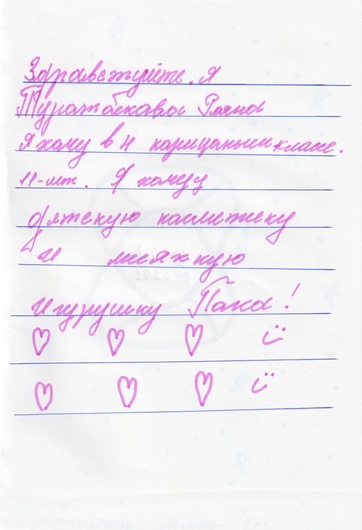 Здравствуйте. Я
Туратбекова Раяна
Я хожу в 4 корицаным классе.
11-лет. Я хочу
дятскую касметику
и мяхкую
игурушку Пака!